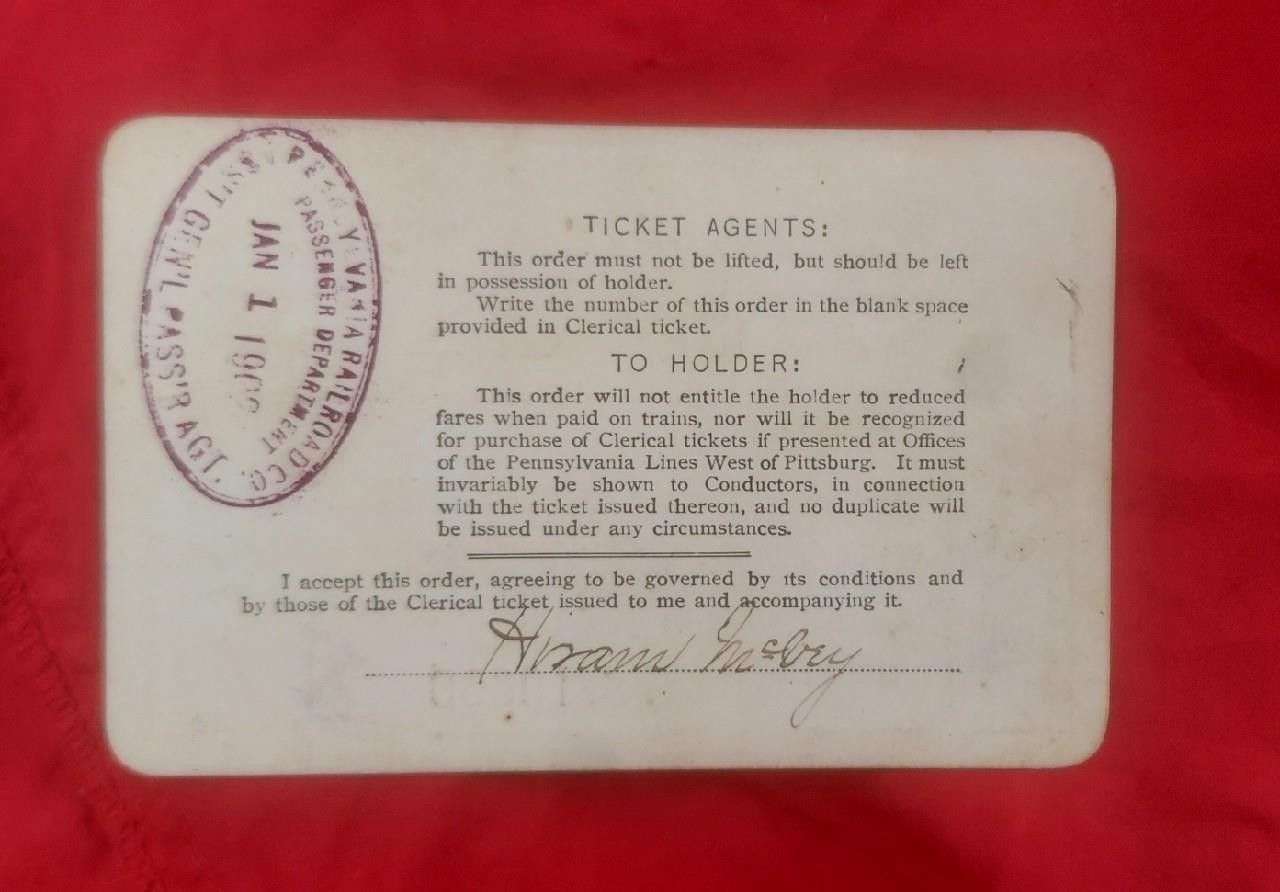 PENNSYLVANIA RAILROAD CO.
PASSENGER DEPARTMENT
JAN 1
ASS'T GEN'L PASS'R AGT.
TICKET AGENTS:
This order must not be lifted, but should be left
in possession of holder.
Write the number of this order in the blank space
provided in Clerical ticket.
TO HOLDER:
This order will not entitle the holder to reduced
fares when paid on trains, nor will it be recognized
for purchase of Clerical tickets if presented at Offices
of the Pennsylvania Lines West of Pittsburg. It must
invariably be shown to Conductors, in connection
with the ticket issued thereon, and no duplicate will
be issued under any circumstances.
I accept this order, agreeing to be governed by its conditions and
by those of the Clerical ticket issued to me and accompanying it.
Hiram